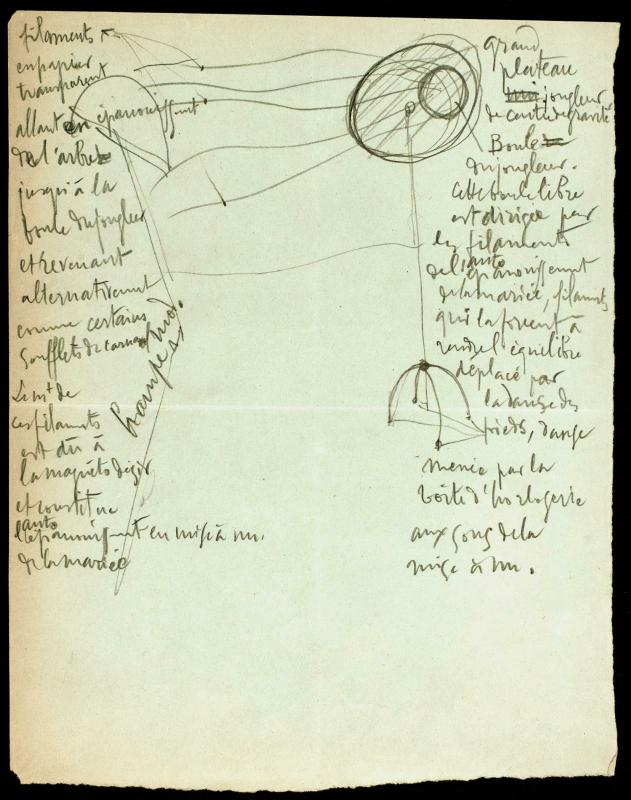 filaments
en papier
transparent
allant en épanouissent
de l'arbre
jusqu'à la
boule du jongleur
et revenant
alternativement
comme certains
soufflets de
Le mt de
ces filaments
est dû à
la magnéto désir
et constitue
l'auto
épanouissent en mise à nu.
de la mariée
hampe mod.
grand
plateau
jongleur
de centre de gravité
Boule
du jongleur.
Cette boule libre
est dirigée par
les filaments
de l'auto épanouissement
de la mariée, filaments
qui la forcent à
rendre l'équilibre
déplacé par
la danse des
pieds, danse
menée par la
boîte d'horlogerie
aux sons de la
mise à nu.